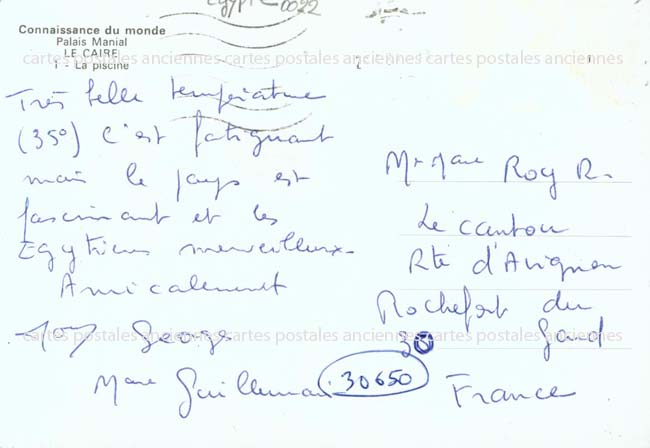 Egypte 0022
Connaissance du monde
Palais Manial
LE CAIRE
1 - La piscine
cartes postales anciennes cartes postales anciennes cartes postales anciennes
Très belle température
(35°) C'est fatiguant
mais le pays est
fascinant et les
Egyptiens merveilleux.
Amicalement
George
Mme Guilleman
Mr Mme Roy R.
Le cantou
Rte d'Avignon
Rochefort du
Gard
30
30650
France
cartes postales anciennes cartes postales anciennes cartes postales anciennes